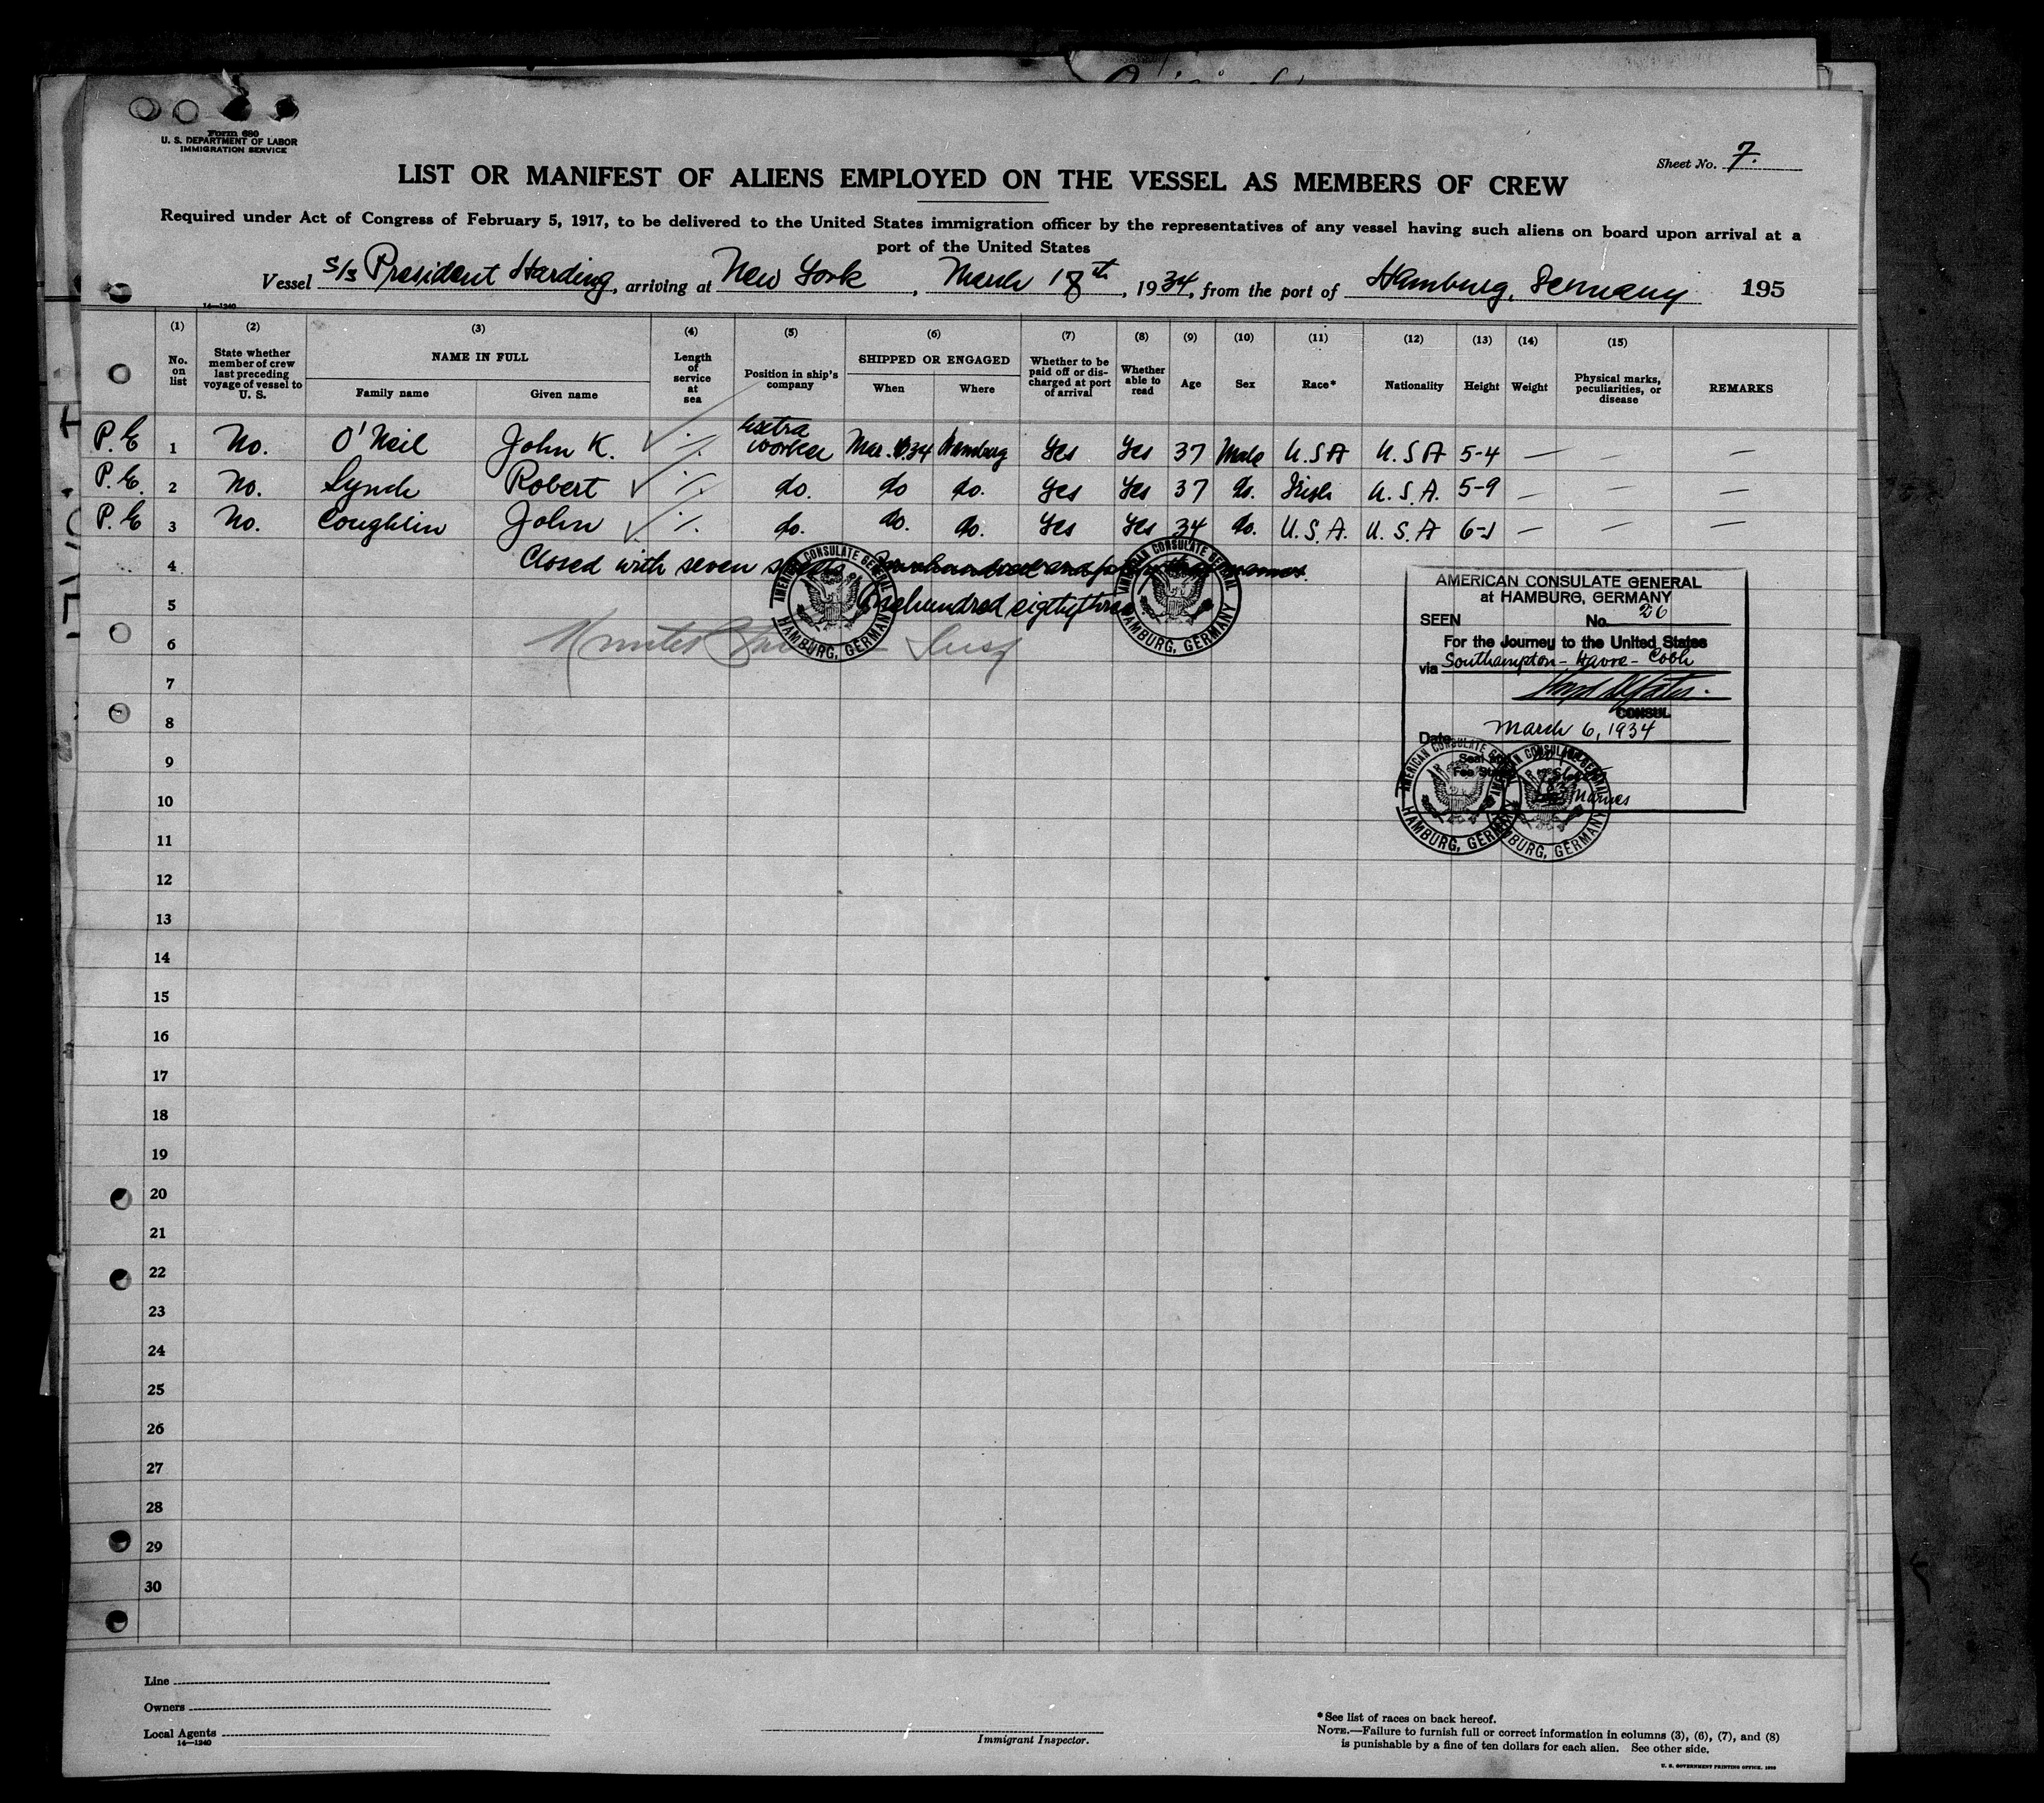 Form 680
U. S. DEPARTMENT OF LABOR
IMMIGRATION SERVICE
Sheet No. 7.
LIST OR MANIFEST OF ALIENS EMPLOYED ON THE VESSEL AS MEMBERS OF CREW
Required under Act of Congress of February 5, 1917, to be delivered to the United States immigration officer by the representatives of any vessel having such aliens on board upon arrival at a
port of the United States
Vessel S/s President Harding, arriving at New York, March 18th, 1934, from the port of Hamburg, Germany 195
14—1240
(1) (2) (3) (4) (5) (6) (7) (8) (9) (10) (11) (12) (13) (14) (15)
No. on list
State whether member of crew last preceding voyage of vessel to U. S.
NAME IN FULL
Family name
Given name
Length of service at sea
Position in ship's company
SHIPPED OR ENGAGED
When
Where
Whether to be paid off or discharged at port of arrival
Whether able to read
Age
Sex
Race*
Nationality
Height
Weight
Physical marks, peculiarities, or disease
REMARKS
P.E 1 No. O'Neil John K. ✓ ⁒ Extra worker Mar. 34 Hamburg Yes Yes 37 Male U.S.A U.S.A 5-4 — — —
P.E. 2 No. Lynch Robert ✓ ⁒ do. do do. Yes Yes 37 do. Irish U.S.A. 5-9 — — —
P.E 3 No. Coughlin John ✓ ⁒ do. do. do. Yes Yes 34 do. U.S.A. U.S.A 6-1 — — —
4 Closed with seven sheets
5 Onehundred eigthythree
6
7
8
9
10
11
12
13
14
15
16
17
18
19
20
21
22
23
24
25
26
27
28
29
30
AMERICAN CONSULATE GENERAL
HAMBURG, GERMANY
AMERICAN CONSULATE GENERAL
HAMBURG, GERMANY
AMERICAN CONSULATE GENERAL
at HAMBURG, GERMANY
SEEN No. 26
For the Journey to the United States
via Southampton - Havre - Cobh
CONSUL
Date March 6, 1934
Seal and
Fee Stamp
names
AMERICAN CONSULATE GENERAL
HAMBURG, GERMANY
AMERICAN CONSULATE GENERAL
HAMBURG, GERMANY
Line
Owners
Local Agents
14—1240
Immigrant Inspector.
*See list of races on back hereof.
NOTE.—Failure to furnish full or correct information in columns (3), (6), (7), and (8)
is punishable by a fine of ten dollars for each alien. See other side.
U. S. GOVERNMENT PRINTING OFFICE.